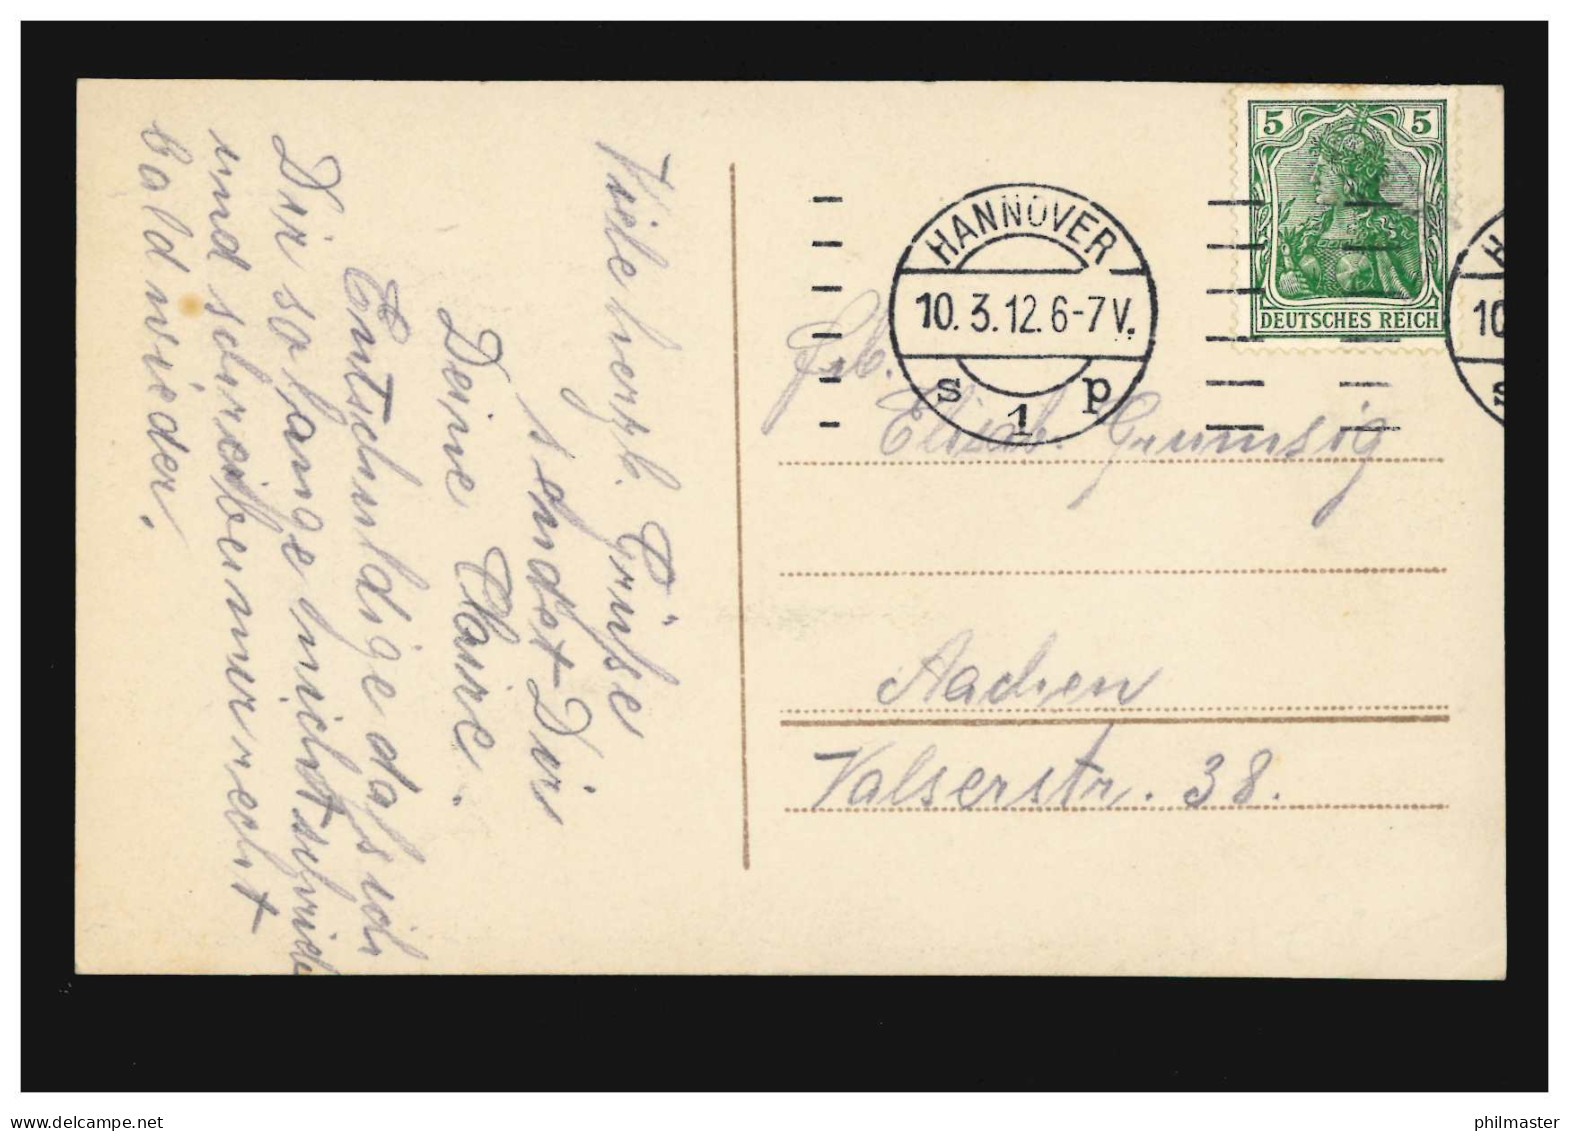 Viele herzl. Grüße
sendet Dir
Deine Claire.
Entschuldige daß ich
Dir so lange nicht schrieb
und schreibe nur recht
bald wieder.
5 5
DEUTSCHES REICH
HANNOVER
10.3.12.6-7V.
s 1 p
H
10
s
Frl.
Elisab. Grumsig
Aachen
Valserstr. 38.
the-best-of-philately.delcampe.net
philmaster